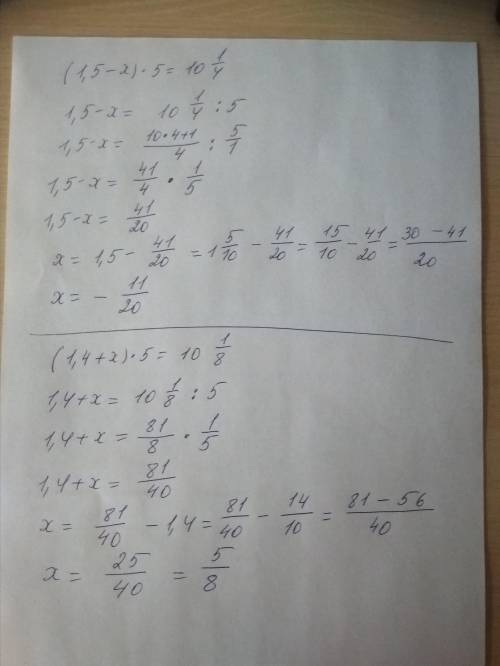 (1,5-x)·5=10 1/4
1,5-x= 10 1/4 : 5
1,5-x= 10*4+1/4 : 5/1
1,5-x= 41/4 · 1/5
1,5-x= 41/20
x= 1,5- 41/20 =1 5/10 - 41/20 = 15/10 - 41/20 = 30-41/20
x= - 11/20
(1,4+x)·5= 10 1/8
1,4+x= 10 1/8 : 5
1,4+x = 81/8 · 1/5
1,4+x= 81/40
x= 81/40 -1,4= 81/40 - 14/10 = 81-56/40
x= 25/40 = 5/8